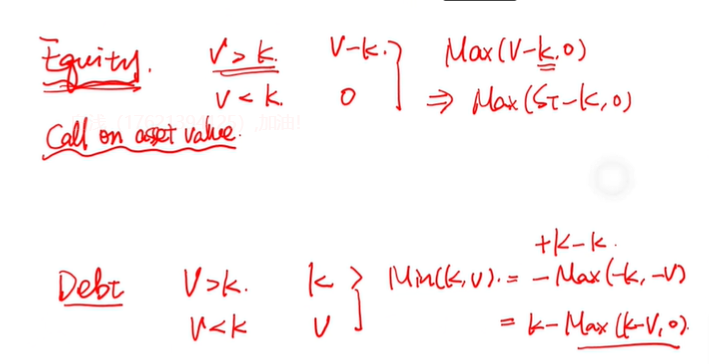 Equity. V>k. V-k. } Max(V-k,0)
V<k. 0 ⇒ Max(ST-k,0)
Call on asset value.
+k-k.
Debt V>k. k } Min(k,v). = -Max(-k,-V)
V<k V = k-Max(k-V,0).